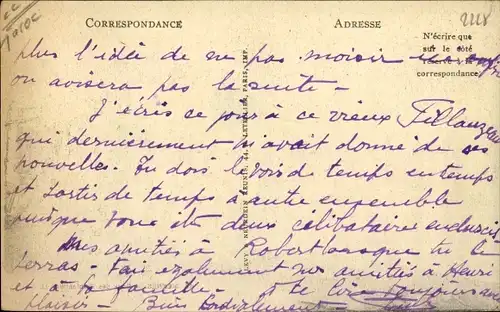 Maroc
2228
CORRESPONDANCE
ADRESSE
N'écrire que
sur le côté
réservé à la
correspondance
plus l'idée de ne pas moisir
on avisera pas la suite -
J'écris ce jour à ce vieux Fillauzeau
qui dernièrement m'avait donné de ses
nouvelles. Tu dois le voir de temps en temps
et sortir de temps à autre ensemble
puisque vous êtes deux célibataires
Mes amitiés à Robert lorsque tu le
verras - Fais également mes amitiés à Henri
et à sa famille - à te lire toujours au
plaisir - Bien Cordialement -
LÉVY & NEURDEIN RÉUNIS, 44, LETELLIER, PARIS, IMP.